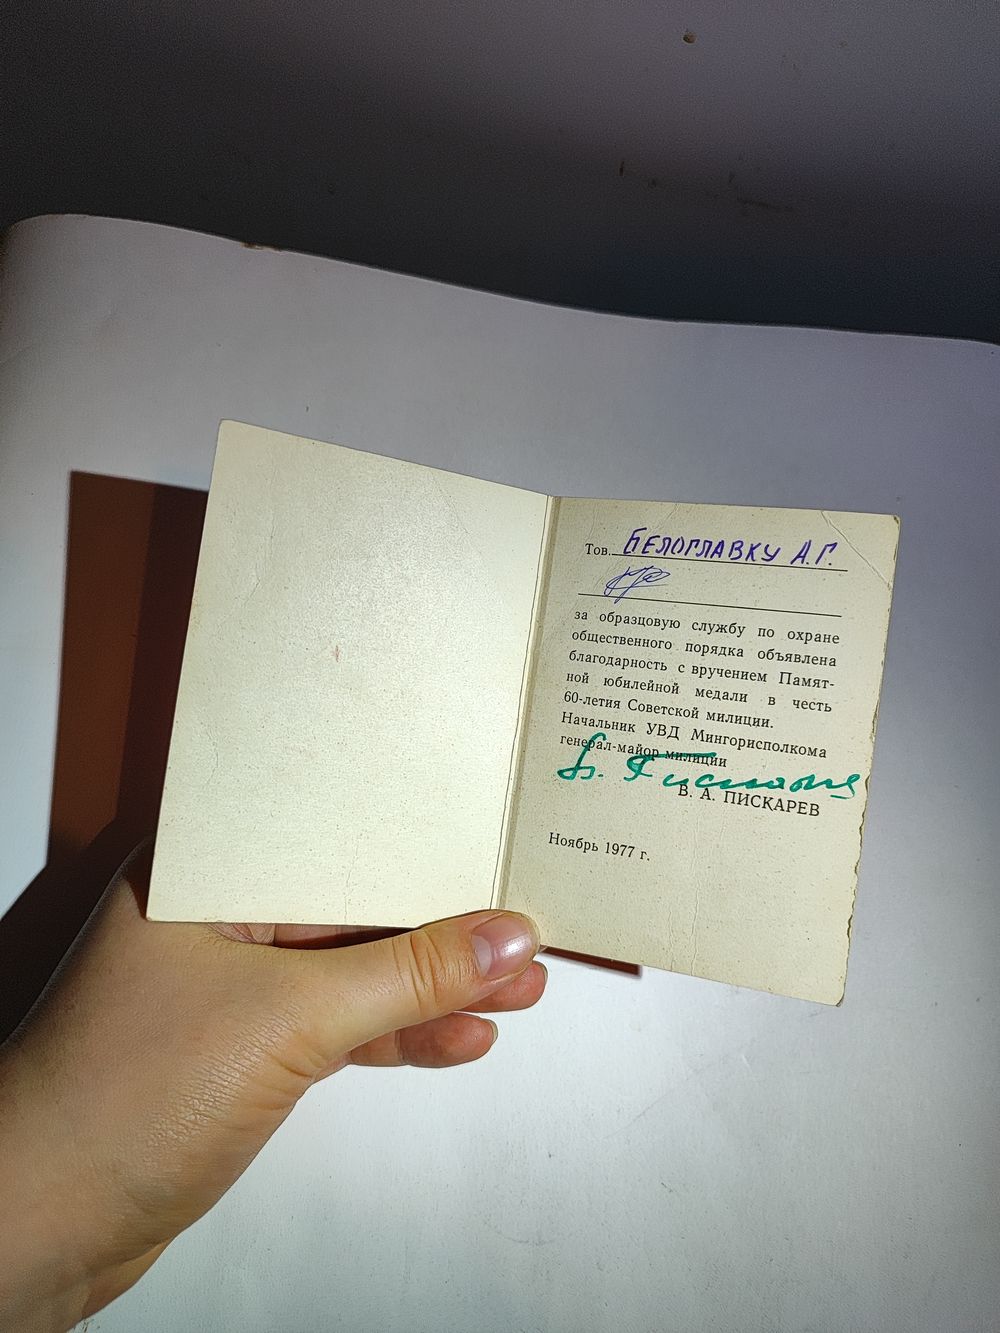 Тов. БЕЛОГЛАВКУ А.Г.
за образцовую службу по охране
общественного порядка объявлена
благодарность с вручением Памят-
ной юбилейной медали в честь
60-летия Советской милиции.
Начальник УВД Мингорисполкома
генерал-майор милиции
В. А. ПИСКАРЕВ
Ноябрь 1977 г.